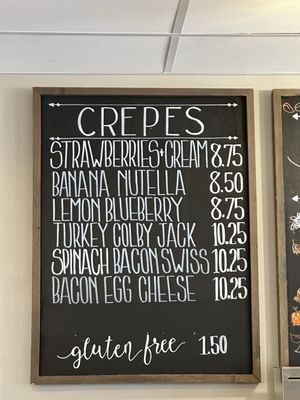 CREPES
STRAWBERRIES+CREAM 8.75
BANANA NUTELLA 8.50
LEMON BLUEBERRY 8.75
TURKEY COLBY JACK 10.25
SPINACH BACON SWISS 10.25
BACON EGG CHEESE 10.25
gluten free 1.50